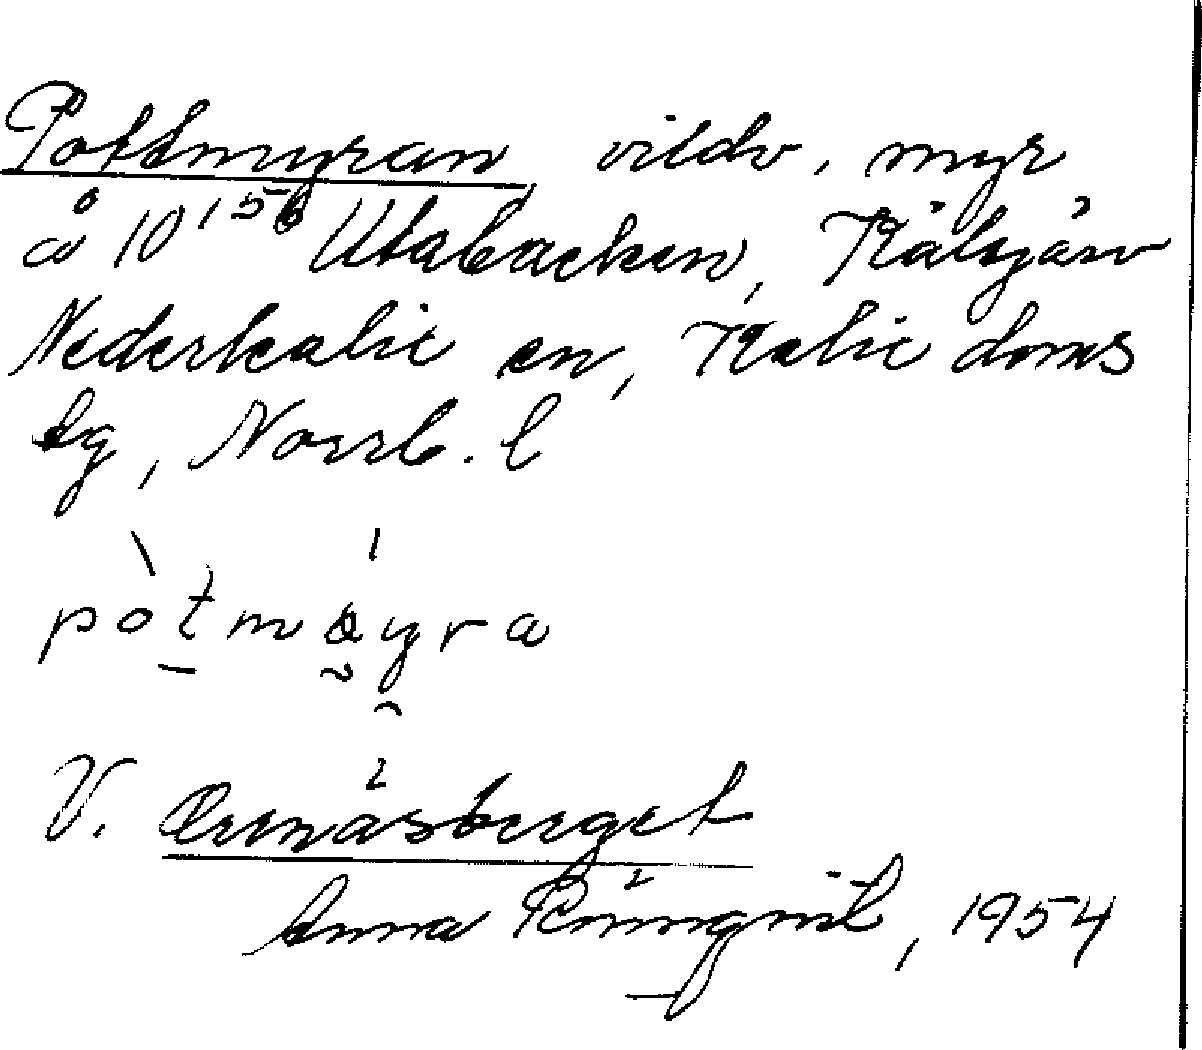 Pottmyran vildv. myr
å 10¹⁵⁶ Utabacken, Kälsjärv
Nederkalix en, Kalix doms
tg, Norrb. l
pòtmøyra
V. Örnäsberget
Anna Rönnqvist, 1954